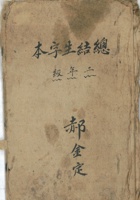 總結生字本
二年級
郝金定